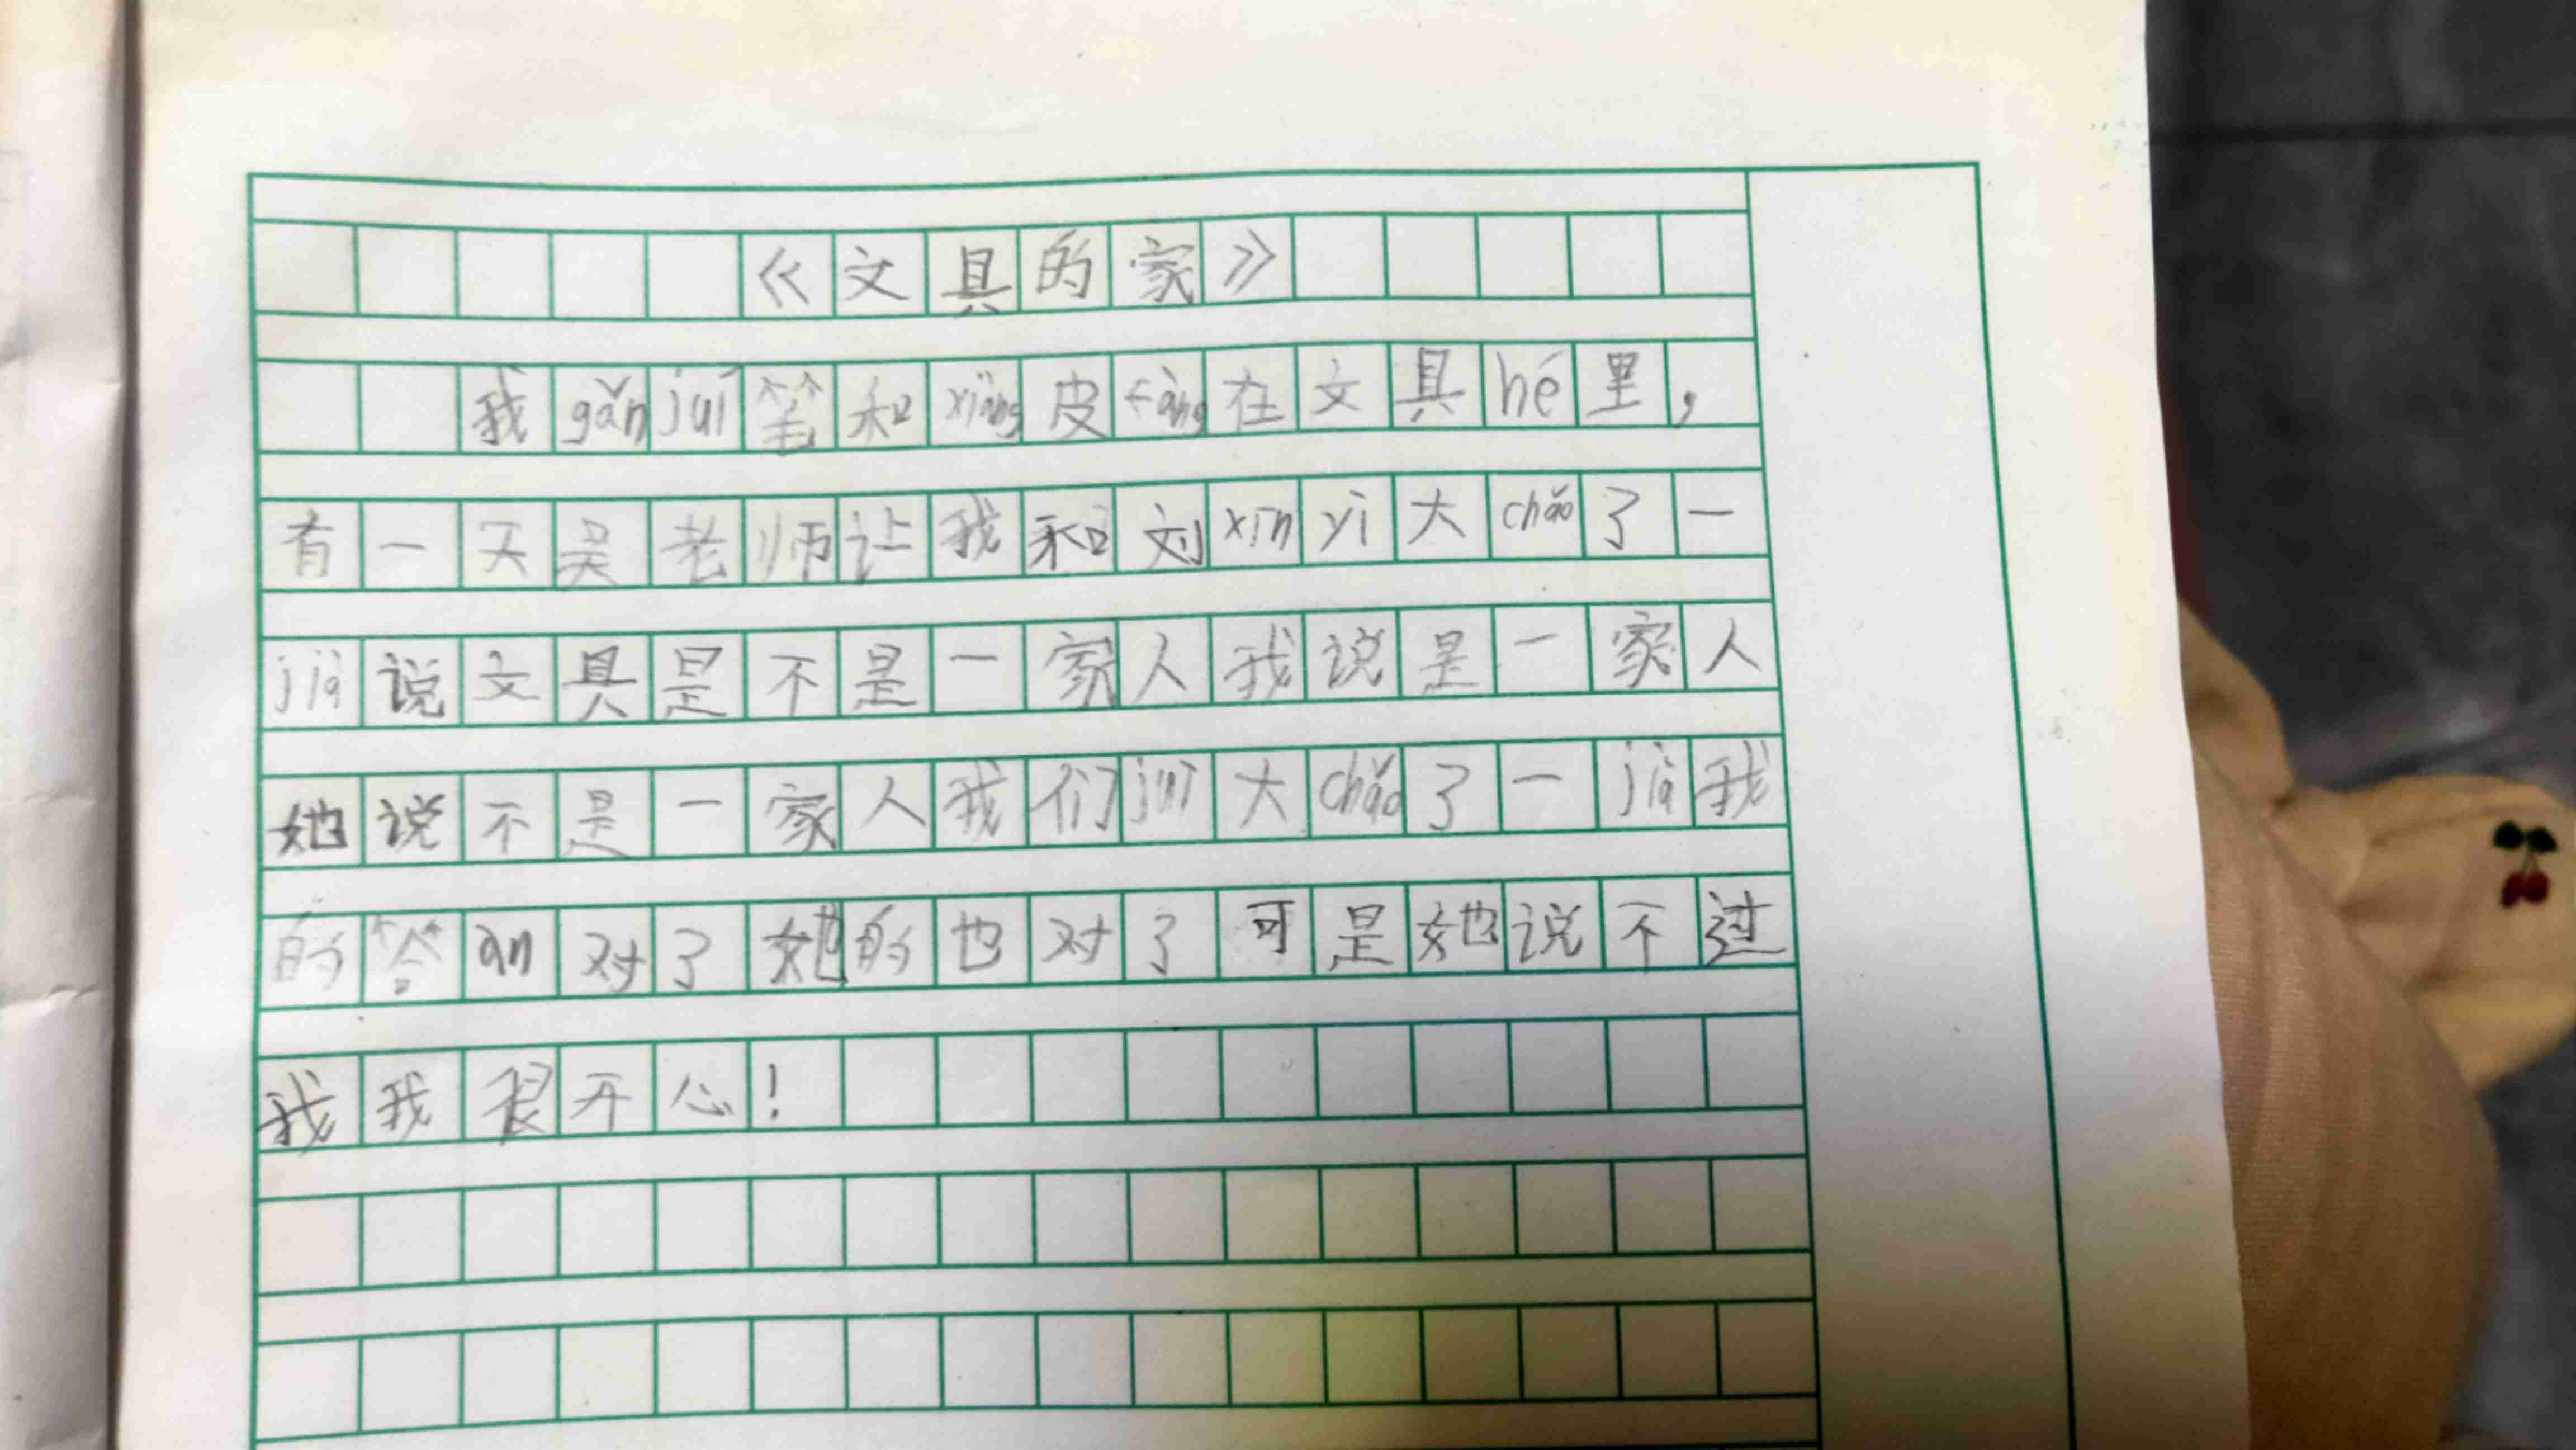 《文具的家》
我gǎnjuī笔和xiàng皮fàng在文具hé里，
有一天吴老师让我和刘xīnyì大chǎo了一
jià说文具是不是一家人我说是一家人
她说不是一家人我们juī大chǎo了一jià我
的答àn对了她的也对了可是她说不过
我我很开心！